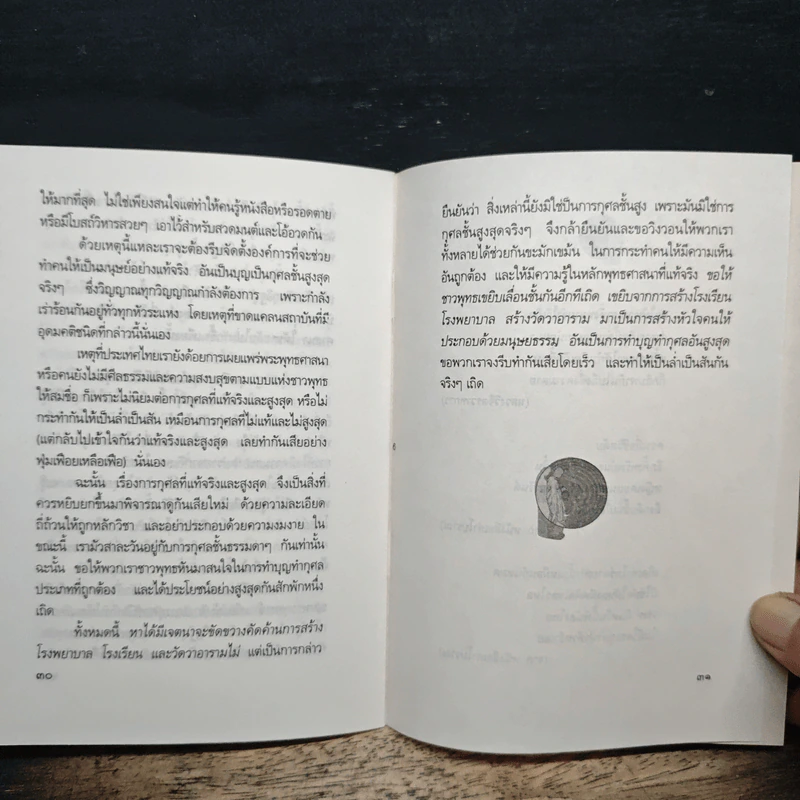 ให้มากที่สุด ไม่ใช่เพียงสนใจแต่ทำให้คนรู้หนังสือหรือรอดตาย
หรือมีโบสถ์วิหารสวยๆ เอาไว้สำหรับสวดมนต์และโอ้อวดกัน
ด้วยเหตุนี้แหละเราจะต้องรีบจัดตั้งองค์การที่จะช่วย
ทำคนให้เป็นมนุษย์อย่างแท้จริง อันเป็นบุญเป็นกุศลชั้นสูงสุด
จริงๆ ซึ่งวิญญาณทุกวิญญาณกำลังต้องการ เพราะกำลัง
เร่าร้อนกันอยู่ทั่วทุกหัวระแหง โดยเหตุที่ขาดแคลนสถาบันที่มี
อุดมคติชนิดที่กล่าวนี้นั่นเอง
เหตุที่ประเทศไทยเรายังด้อยการเผยแพร่พระพุทธศาสนา
หรือคนยังไม่มีศีลธรรมและความสงบสุขตามแบบแห่งชาวพุทธ
ให้สมชื่อ ก็เพราะไม่นิยมต่อการกุศลที่แท้จริงและสูงสุด หรือไม่
กระทำกันให้เป็นล่ำเป็นสัน เหมือนการกุศลที่ไม่แท้และไม่สูงสุด
(แต่กลับไปเข้าใจกันว่าแท้จริงและสูงสุด เลยทำกันเสียอย่าง
ฟุ่มเฟือยเหลือเฟือ) นั่นเอง
ฉะนั้น เรื่องการกุศลที่แท้จริงและสูงสุด จึงเป็นสิ่งที่
ควรหยิบยกขึ้นมาพิจารณาดูกันเสียใหม่ ด้วยความละเอียด
ถี่ถ้วนให้ถูกหลักวิชา และอย่าประกอบด้วยความงมงาย ใน
ขณะนี้ เรามัวสาละวันอยู่กับการกุศลชั้นธรรมดาๆ กันเท่านั้น
ฉะนั้น ขอให้พวกเราชาวพุทธหันมาสนใจในการทำบุญทำกุศล
ประเภทที่ถูกต้อง และได้ประโยชน์อย่างสูงสุดกันสักพักหนึ่ง
เถิด
ทั้งหมดนี้ หาได้มีเจตนาจะขัดขวางคัดค้านการสร้าง
โรงพยาบาล โรงเรียน และวัดวาอารามไม่ แต่เป็นการกล่าว
๓๐
ยืนยันว่า สิ่งเหล่านี้ยังมิใช่เป็นการกุศลชั้นสูง เพราะมันมิใช่การ
กุศลชั้นสูงสุดจริงๆ จึงกล้ายืนยันและขอวิงวอนให้พวกเรา
ทั้งหลายได้ช่วยกันขะมักเขม้น ในการกระทำคนให้มีความเห็น
อันถูกต้อง และให้มีความรู้ในหลักพุทธศาสนาที่แท้จริง ขอให้
ชาวพุทธเขยิบเลื่อนชั้นกันอีกทีเถิด เขยิบจากการสร้างโรงเรียน
โรงพยาบาล สร้างวัดวาอาราม มาเป็นการสร้างหัวใจคนให้
ประกอบด้วยมนุษยธรรม อันเป็นการทำบุญทำกุศลอันสูงสุด
ขอพวกเราจงรีบทำกันเสียโดยเร็ว และทำให้เป็นล่ำเป็นสันกัน
จริงๆ เถิด
๓๑